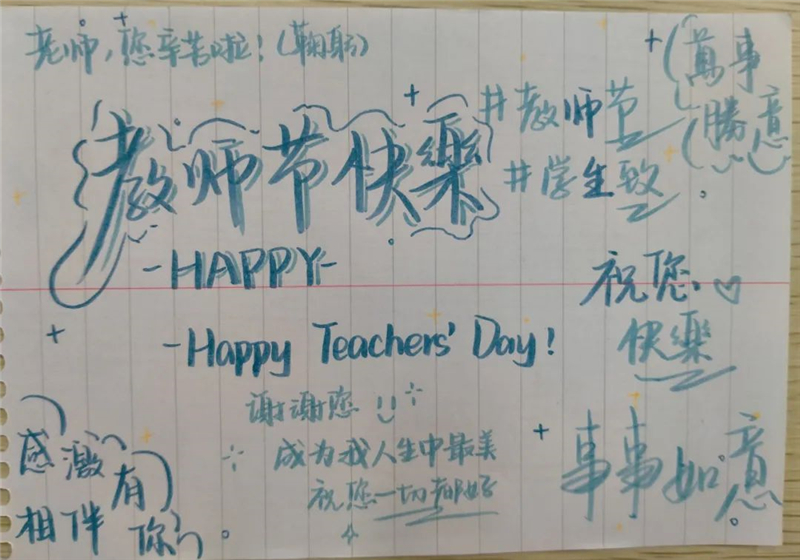 老师，您辛苦啦！（鞠躬）
萬事
勝意
#教师节
#学生致
教师节快樂
-HAPPY-
祝您
快樂
-Happy Teachers' Day!
谢谢您
成为我人生中最美
祝您一切都好
事事如意
感激有你
相伴